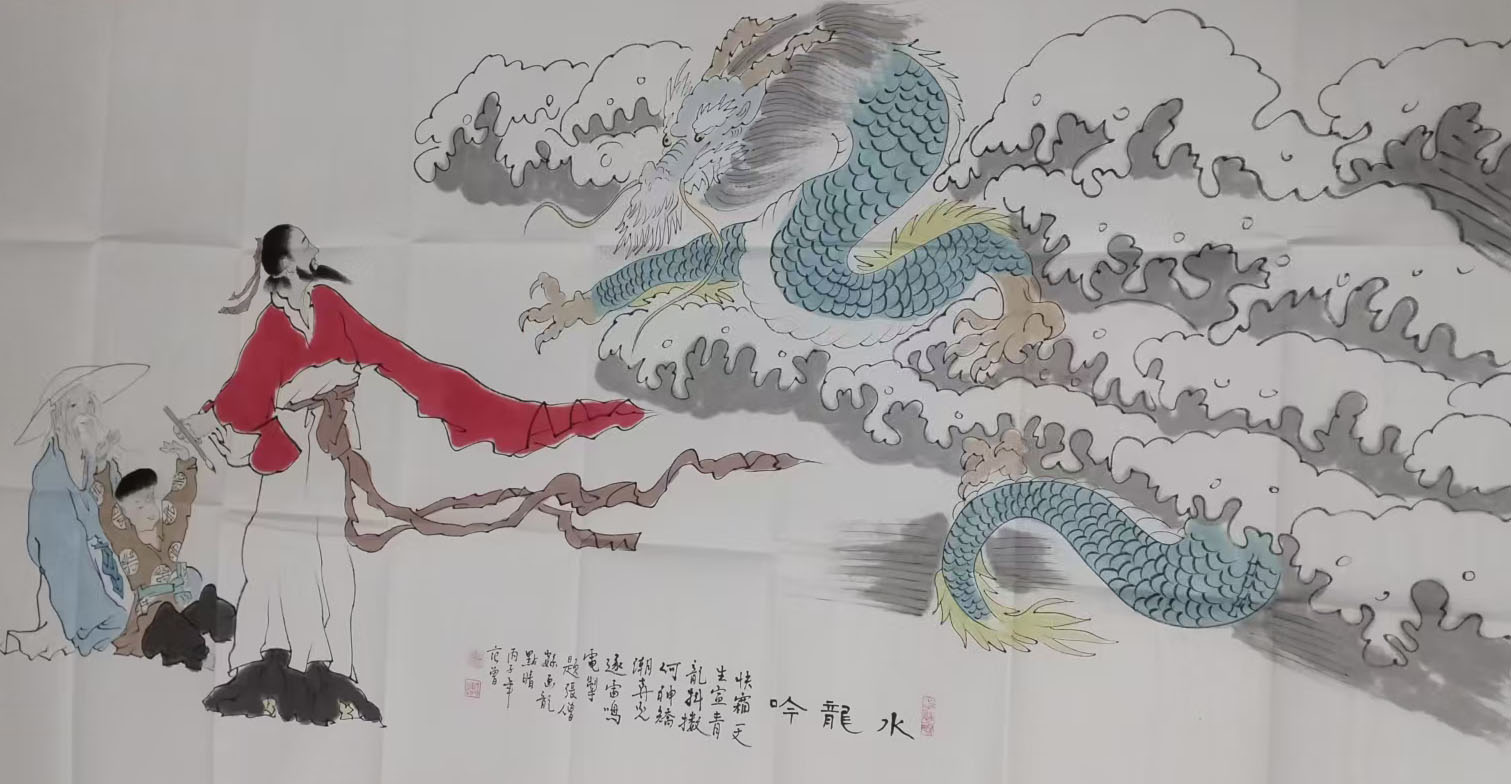 水龍吟
快霜
生宣青
龍抖擻
何神矯
潮奔光
逐雷鳴
電掣
題張僧
繇画龍
點睛
丙子年
范曾